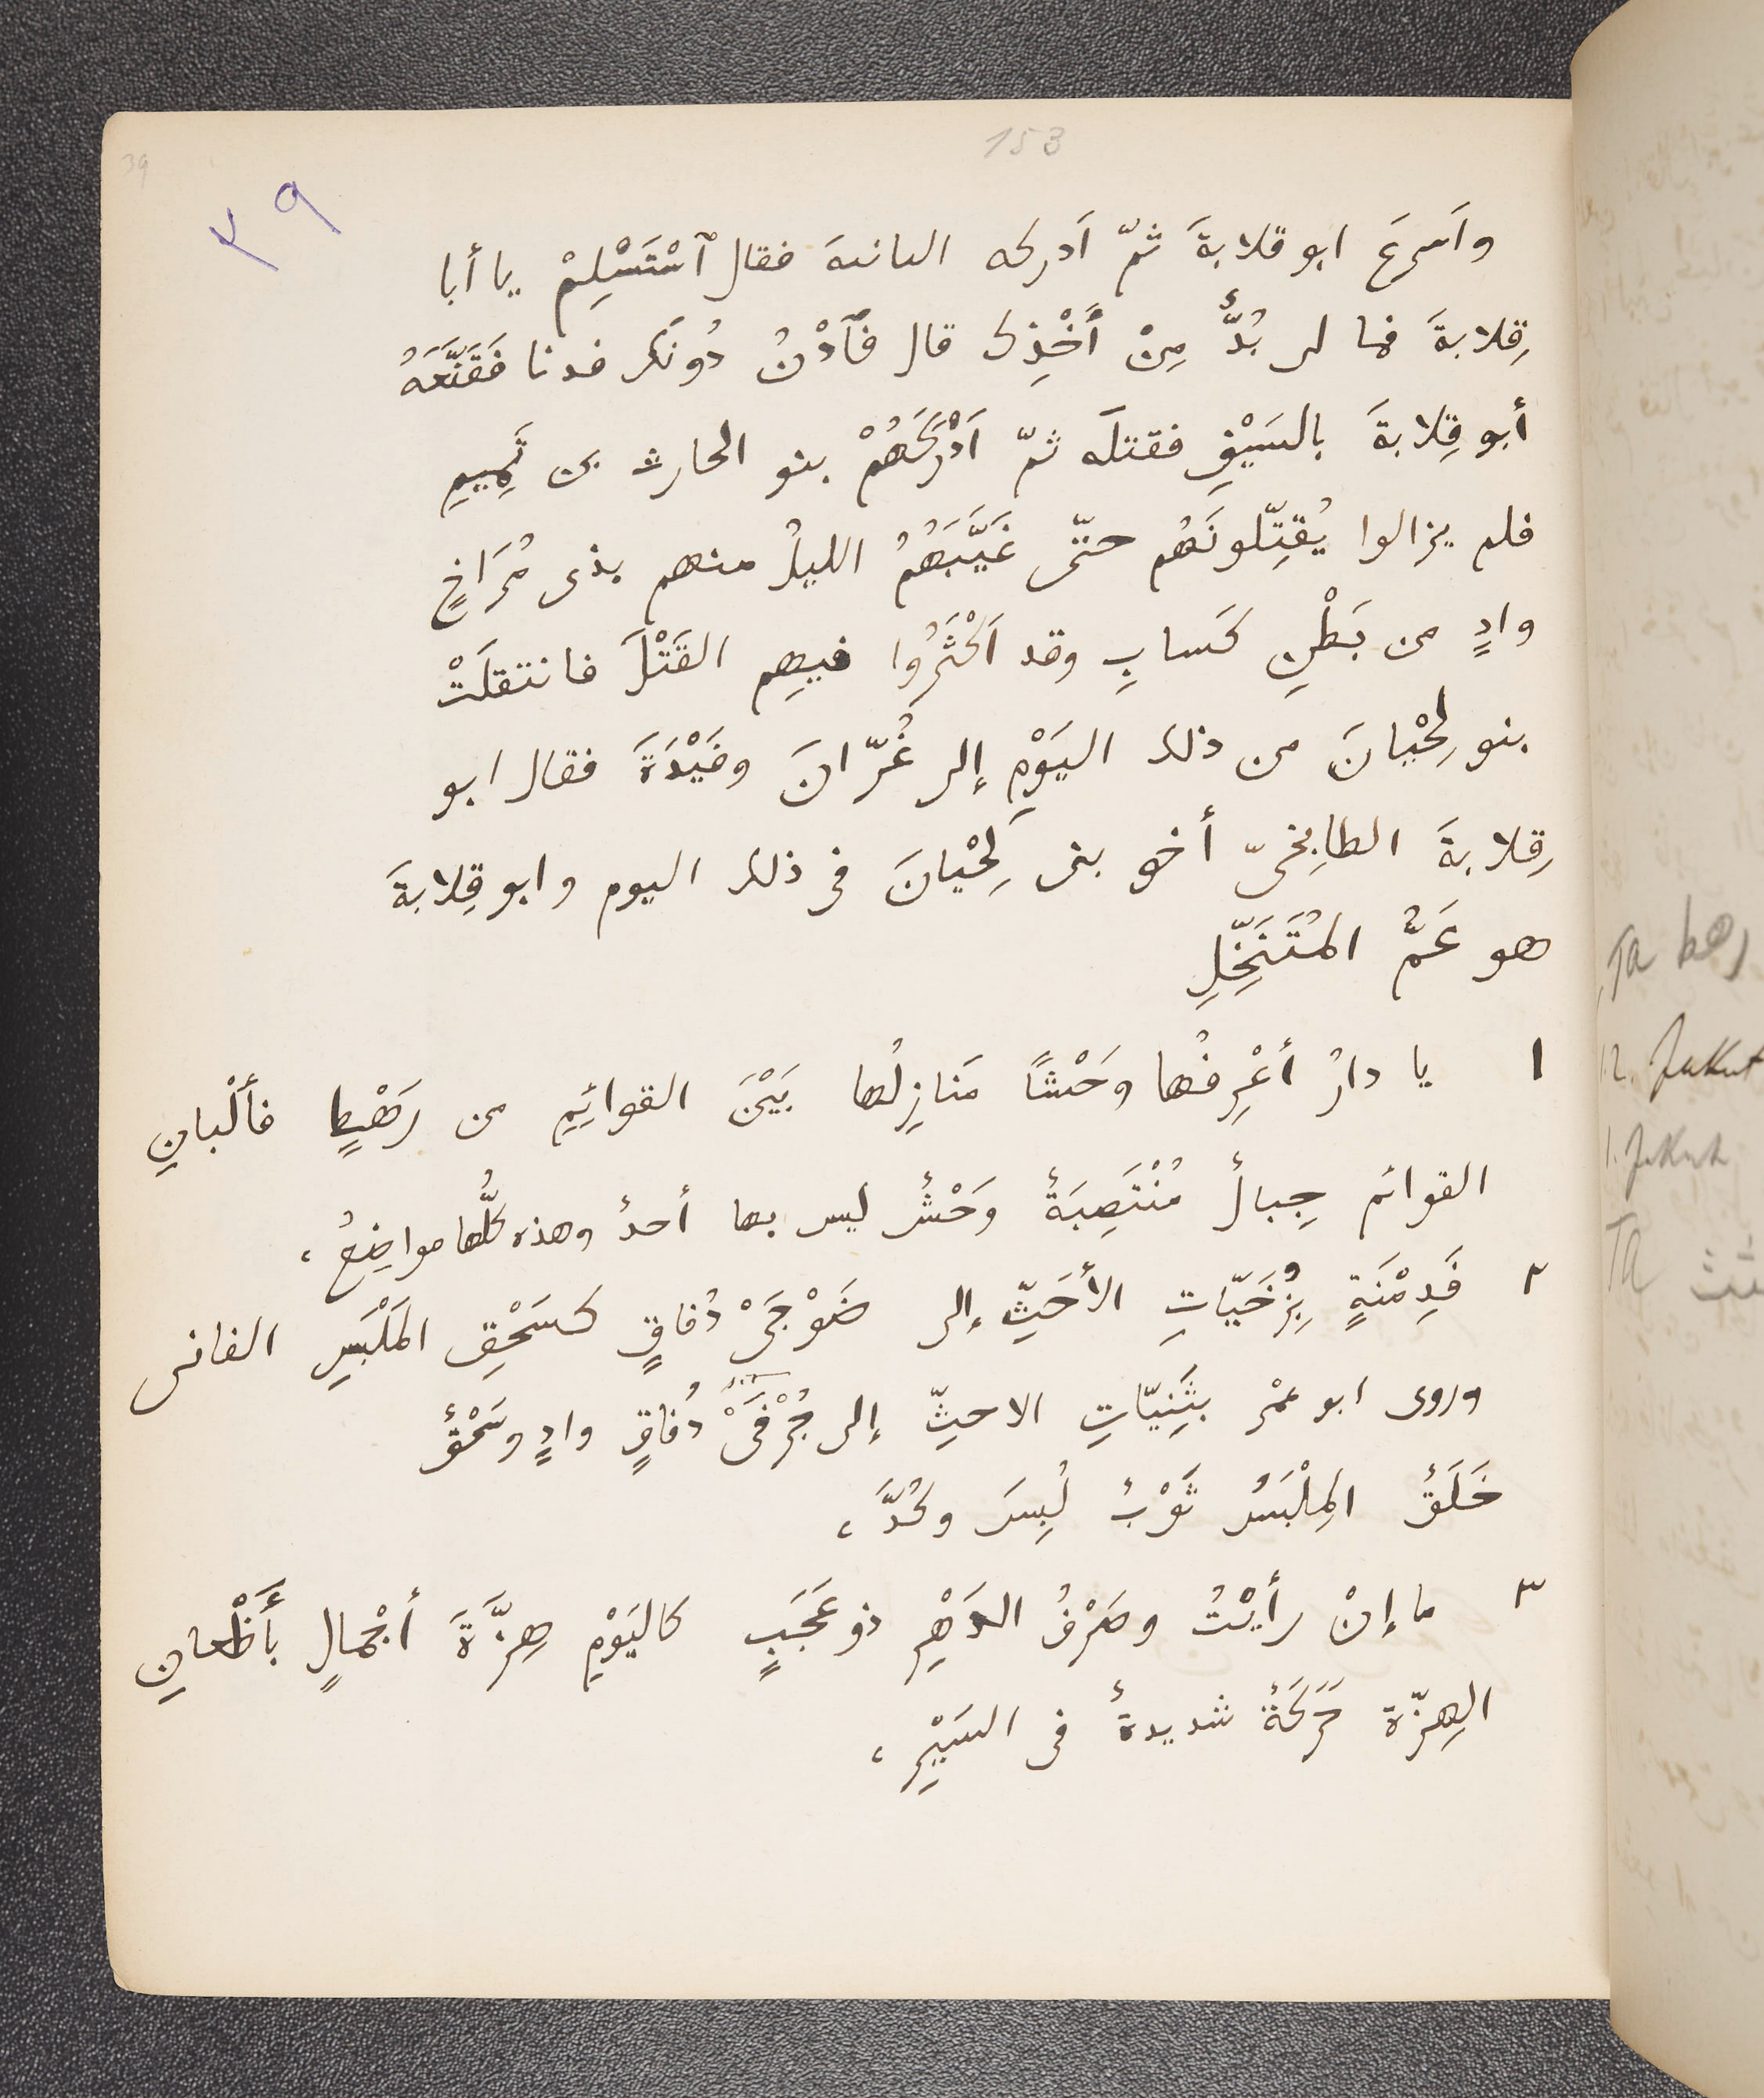 153
39
٣٩
وأَسرعَ ابو قلابةَ ثمّ اَدركه الىانىهَ فقال ٱسْتَسْلِمْ يا أبا
قِلابةَ فما لى بُدٌّ مِنْ أَخْذِكَ قال فَٱدْنُ دُونَكَ فدنا فَقَنَّعَهُ
أبو قِلابةَ بالسَيْفِ فقتلَه ثمّ اَدْرَكَهُمْ بنو الحارث بن تَمِيمِ
فلم يزالوا يُقتِّلونَهُم حتّى غَيَّبَهُمُ الليلُ منهم بذى مُرَاخٍ
وادٍ من بَطْنِ كَسابِ وقد اَكْثَرُوا فيهِم القَتْلَ فانتقلَتْ
بنو لِحْيانَ من ذلك اليَوْمِ إلى غُرّانَ وفَيْدَةَ فقال ابو
قِلابةَ الطابِخىّ أخو بنى لِحْيانَ فى ذلك اليوم وابو قِلابةَ
هو عَمُّ المُتَنَخِّلِ
١ يا دارُ أعْرِفُها وحَشًا مَنازِلُها بَيْنَ القوائِمِ من رَهْطٍ فأَلْبانِ
القوائم جِبالٌ مُنْتَصِبَةٌ وَحْشٌ ليس بها أحدٌ وهذه كلُّها مواضِعُ،
٢ فَدِمْنَةٍ بِرُخَيّاتِ الأَحَثِّ إلى ضَوْجَىْ دُفاقٍ كسَحْقِ المَلْبَسِ الفانى
وروى ابو عمْرٍ بثَنِيّاتِ الاحثِّ إلى جُرْفَىْ دُفاقٍ وادٍ وسَحْقٌ
خَلَقٌ المِلْبَسُ ثَوْبٌ لُبِسَ وكُدَّ،
٣ ما إنْ رأَيْتُ وصَرْفُ الدَهْرِ ذو عَجَبٍ كاليَوْمِ هِزَّةَ أجْمالٍ بأَظْعانِ
الهِزّة حَرَكَةٌ شديدةٌ فى السَيْرِ،
رهط Ta
1.2. Jakut
1. Jakut
Ta